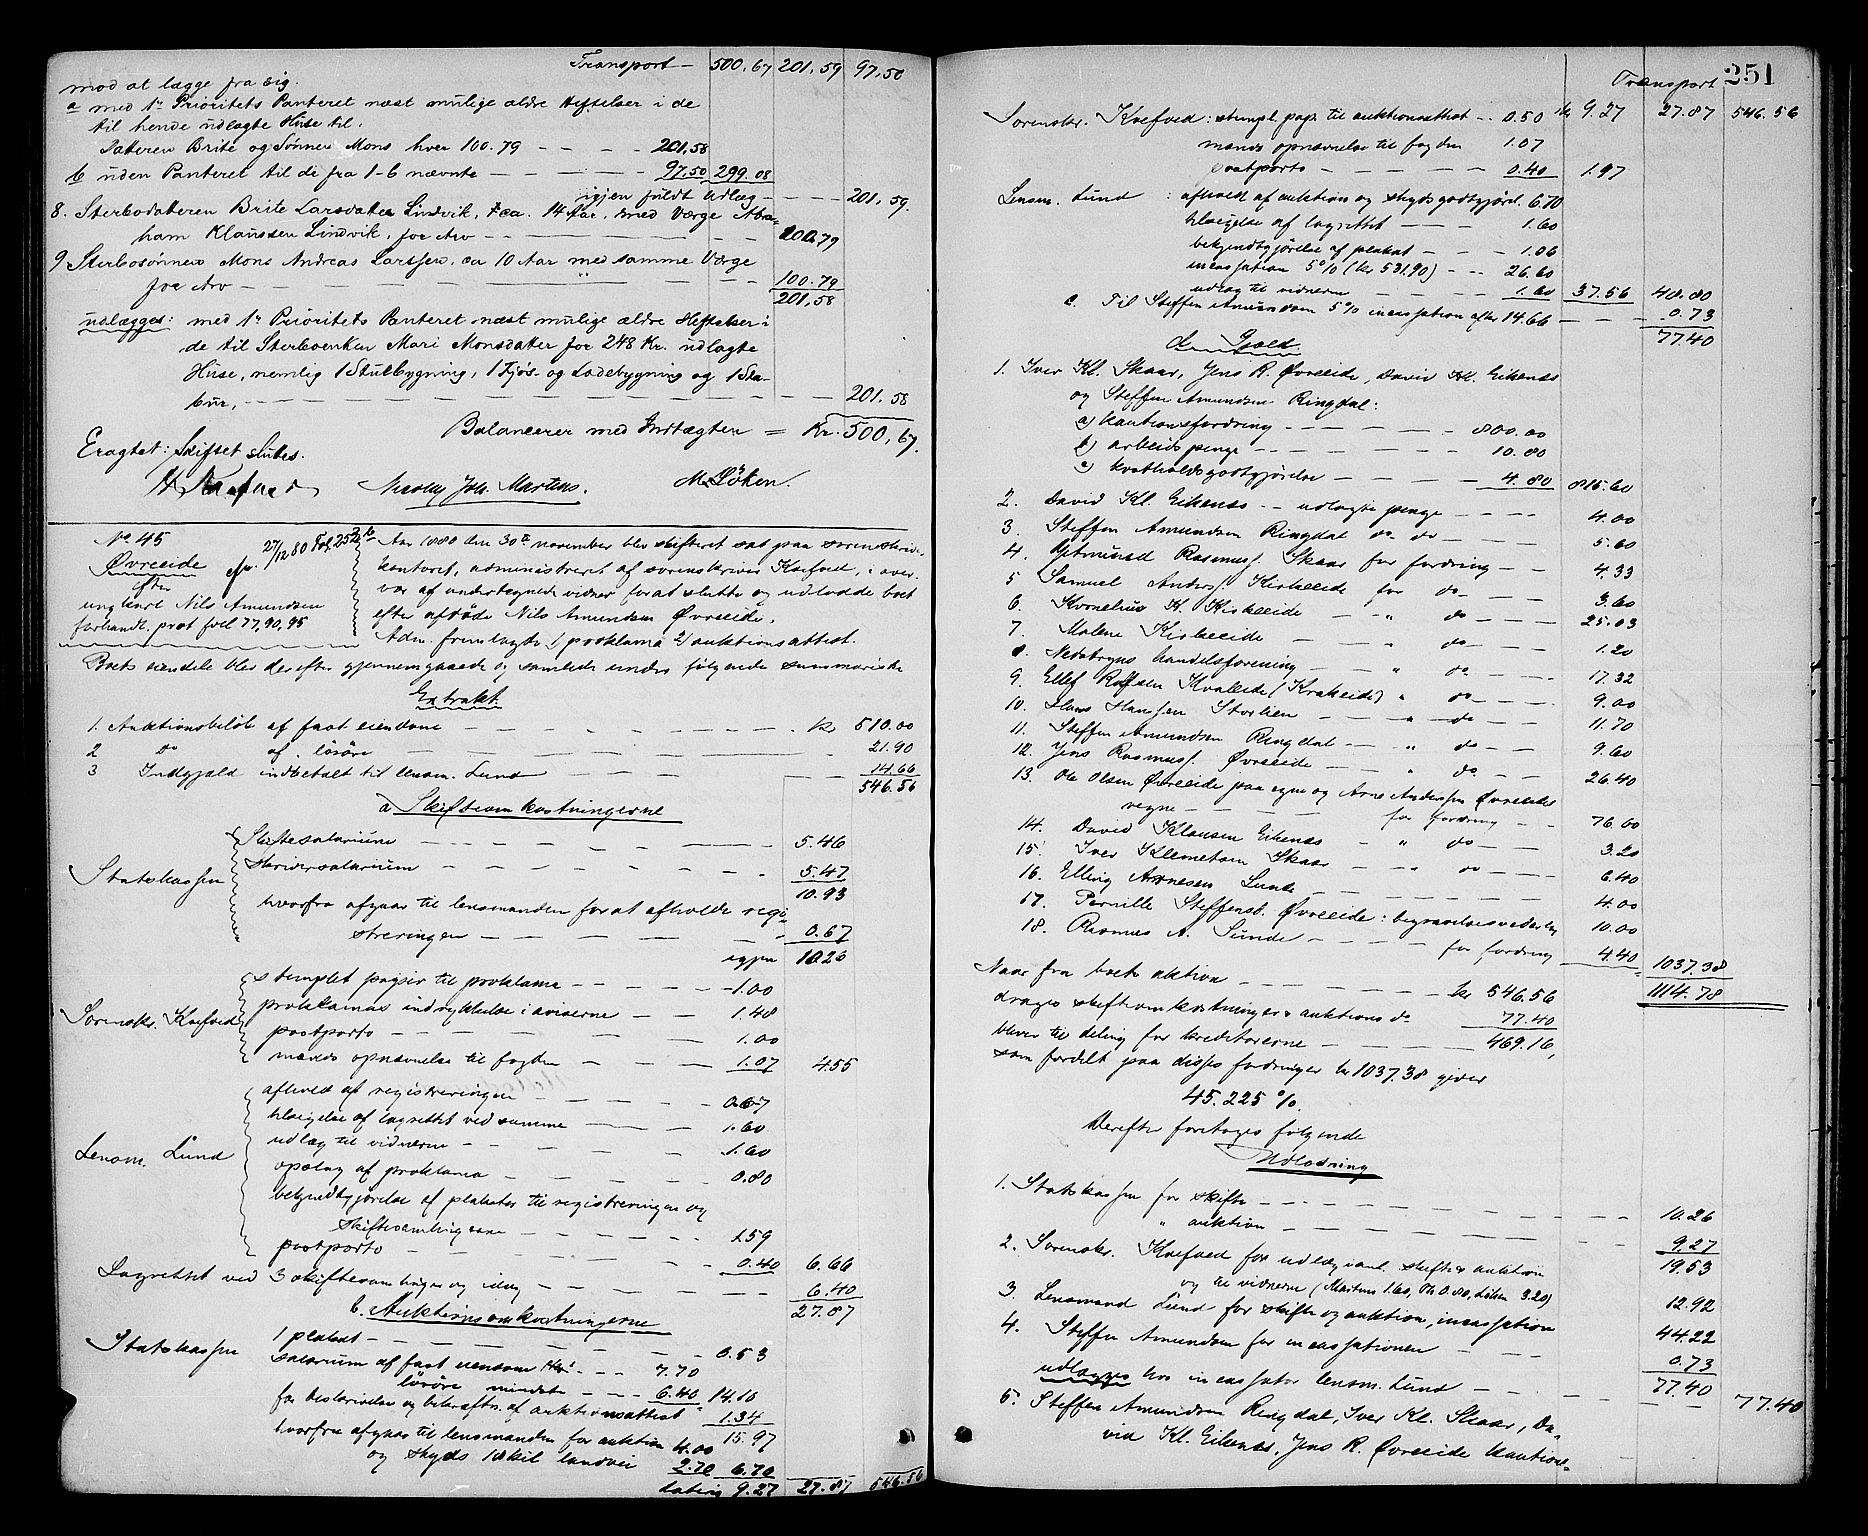 Transport — 500,67 201,59 97,50
mod at lægge fra sig.
a med 1ste Prioritets Panteret næst mulige ældre Heftelser i de
til hende udlagte Huse til.
Datteren Brite og Sønnen Mons hver 100.79 — — — — 201,58
b uden Panteret til de fra 1-6 nævnte — — — — 97,50 299.08
igjen fuldt Udlæg — — — 201,59.
8. Sterbodatteren Brite Larsdatter Lindvik, + ca. 14 Aar, med Værge Abra-
ham Klaussen Lindvik, for Arv — — — — 100,79
9 Sterbosønnen Mons Andreas Larssen, ca 10 Aar med samme Værge
for Arv — — — — 100.79
201,58
udlægges: med 1ste Prioritets Panteret næst mulige ældre Heftelser i
de til Sterboenken Mari Monsdatter for 248 Kr. udlagte
Huse, nemlig 1 Stuebygning, 1 Fjøs- og Ladebygning og 1 Sta-
bur, — — — — 201.58
Balancerer med Indtægten = Kr. 500,67.
Eragtet: Skiftet sluttes.
H. Knefved Nicolay Joh. Martens. M. Löken.
No 45
Øvreeide
efter
ungkarl Nils Amundsen
forhandl. prot fol 77, 90, 95
27/12 80 Fol. 252
Aar 1880 den 30te november blev skifteret sat paa sorenskriver-
kontoret, administreret af sorenskriver Knefved, i over-
vær af undertegnede vidner for at slutte og udlodde boet
efter afdøde Nils Amundsen Øvreeide.
Adm. fremlagde 1) proklama 2) auktionsattest.
Boets eiendele blev derefter gjennemgaaede og samlede under følgende summariske
Extrakt
1. Auktionsbeløb af fast eiendom — — — kr 510.00
2 do af løsøre — — — 21.90
3 Indgjæld indbetalt til lensm. Lund — — — 14.66
546.56
a Skifteomkostningerne
Statskassen Skiftesalarium — — — 5.46
Skriversalarium — — — 5.47
10.93
hvorfra afgaar til lensmanden for at afholde regi-
streringen — — — 0.67
igjen 10.26
Sorenskr. Knefved stemplet papir til proklama — — — 1.00
proklamas indrykkelse i aviserne — — 1.48
postporto — — — 1.00
mænds opnævnelse til fogden — — 1.07 4.55
Lensm. Lund afhold af registreringen — — 0.67
tilsigelse af lagrettet ved samme — — 1.60
udlæg til vidnerne — — 1.60
opslag af proklama — — 0.80
bekjendtgjørelse af plakater til registreringen og
skiftesamlingerne — — — 1.59
postporto — — — 0.40 6.66
Lagrettet ved 3 skiftesamlinger og idag — — — 6.40
27.87
b. Auktionsomkostningerne
Statskassen 1 plakat — — — 0.53
salarium af fast eiendom — — 7.70
løsøre mindste — — — 6.40 14.10
for beskrivelse og bekræftn. af auktionsattest 1.34
15.97
hvorfra afgaar til lensmanden for auktion 4.00
og skyds landvei 2.70 6.70
Lateris 9.27 27.87 546.56
251
Transport
Sorenskr. Knefved: stempl. pap. til auktionsattest — 0.50 kr 9.27 27.87 546.56
mænds opnævnelse til fogden 1.07
postporto — — — 0.40 1.97
Lensm. Lund: afhold af auktion og skydsgodtgjørl. 6.70
tilsigelse af lagrettet — — — 1.60
bekjendtgjørelse af plakat — — 1.06
incassation 5% (kr 531.90) — — 26.60
udlæg til vidnerne — — — 1.60 37.56 48.80
c. Til Steffen Amundsen 5% incassation efter 14.66 — — — 0.73
77.40
d. Gjæld.
1. Iver Kl. Skaar, Jens R. Øvreeide, David Kl. Eikenæs
og Steffen Amundsen Ringdal:
a) kautionsfordring — — — — 800.00
b) arbeidspenge — — — — 10.80
c) kostholdsgodtgjørelse — — — 4.80 815.60
2. David Kl. Eikenæs — udlagte penge — — — 4.00
3. Steffen Amundsen Ringdal do do — — — 5.60
4. Rasmuss. Skaar for fordring — — 4.33
5 Samuel Anders. Kirkeeide for do — — 3.60
6. Kornelius K. Kirkeeide — — " do — — 25.03
7. Malene Kirkeeide — — " do — — 1.20
8. Nedstryns handelsforening — — " do — — 17.32
9. Ellef Rolfsen Kvaleide (Krakeeide) " do — — 9.00
10. Hans Hanssen Storlien — — " do — — 11.70
11. Steffen Amundsen Ringdal — " do — — 9.60
12. Jens Rasmuss. Øvreeide — — " do — — 26.40
13. Ole Olsen Øvreeide paa egne og Arne Anderssen Øvreeides
vegne — — — for fordring — — 76.60
14. David Klausen Eikenæs — " do — — 3.20
15. Iver Klemetsen Skaar — — " do — — 6.40
16. Elling Arnesen Lunde — — — 4.00
17. Pernille Steffensd. Øvreeide: begravelsesvederlag 10.00
18. Rasmus A. Sunde — — — for fordring 4.40 1037.38
1114.78
Naar fra boets aktiva — — — kr 546.56
drages skifteomkostninger & auktions do 77.40
bliver til deling for kreditorerne — — — 469.16,
som fordelt paa disses fordringer kr 1037.38 giver
45.225%.
Derefter foretoges følgende
Udlodning
1. Statskassen for skifte — — — 10.26
" auktion — — — 9.27
19.53
2. Sorenskr. Knefved for udlæg anl. skifte & auktion
og til vidnerne (Martens 1.60, 0.80, Löken 3.20) 12.92
3. Lensmand Lund for skifte og auktion, incassation 44.22
4. Steffen Amundsen for incassationen — — — 0.73
77.40
udlægges hos incassator lensm. Lund — — — 77.40
5. Steffen Amundsen Ringdal, Iver Kl. Skaar, Da-
vid Kl. Eikenæs, Jens R. Øvreeide kautions-